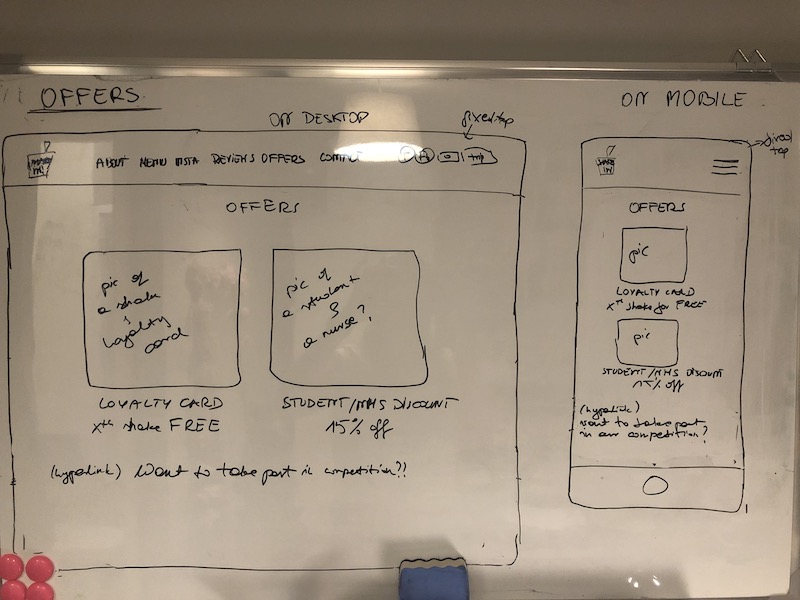 OFFERS
ON DESKTOP
fixed top
ABOUT MENU INSTA REVIEWS OFFERS CONTACT
OFFERS
pic of
a shake
&
loyalty
card
pic of
a student
&
a nurse?
LOYALTY CARD
Xth shake FREE
STUDENT/NHS DISCOUNT
15% off
(hyperlink) Want to take part in competition?!
ON MOBILE
fixed
top
SHAKE
IN
OFFERS
pic
LOYALTY CARD
Xth shake for FREE
pic
STUDENT/NHS DISCOUNT
15% off
(hyperlink)
want to take part
in our competition?